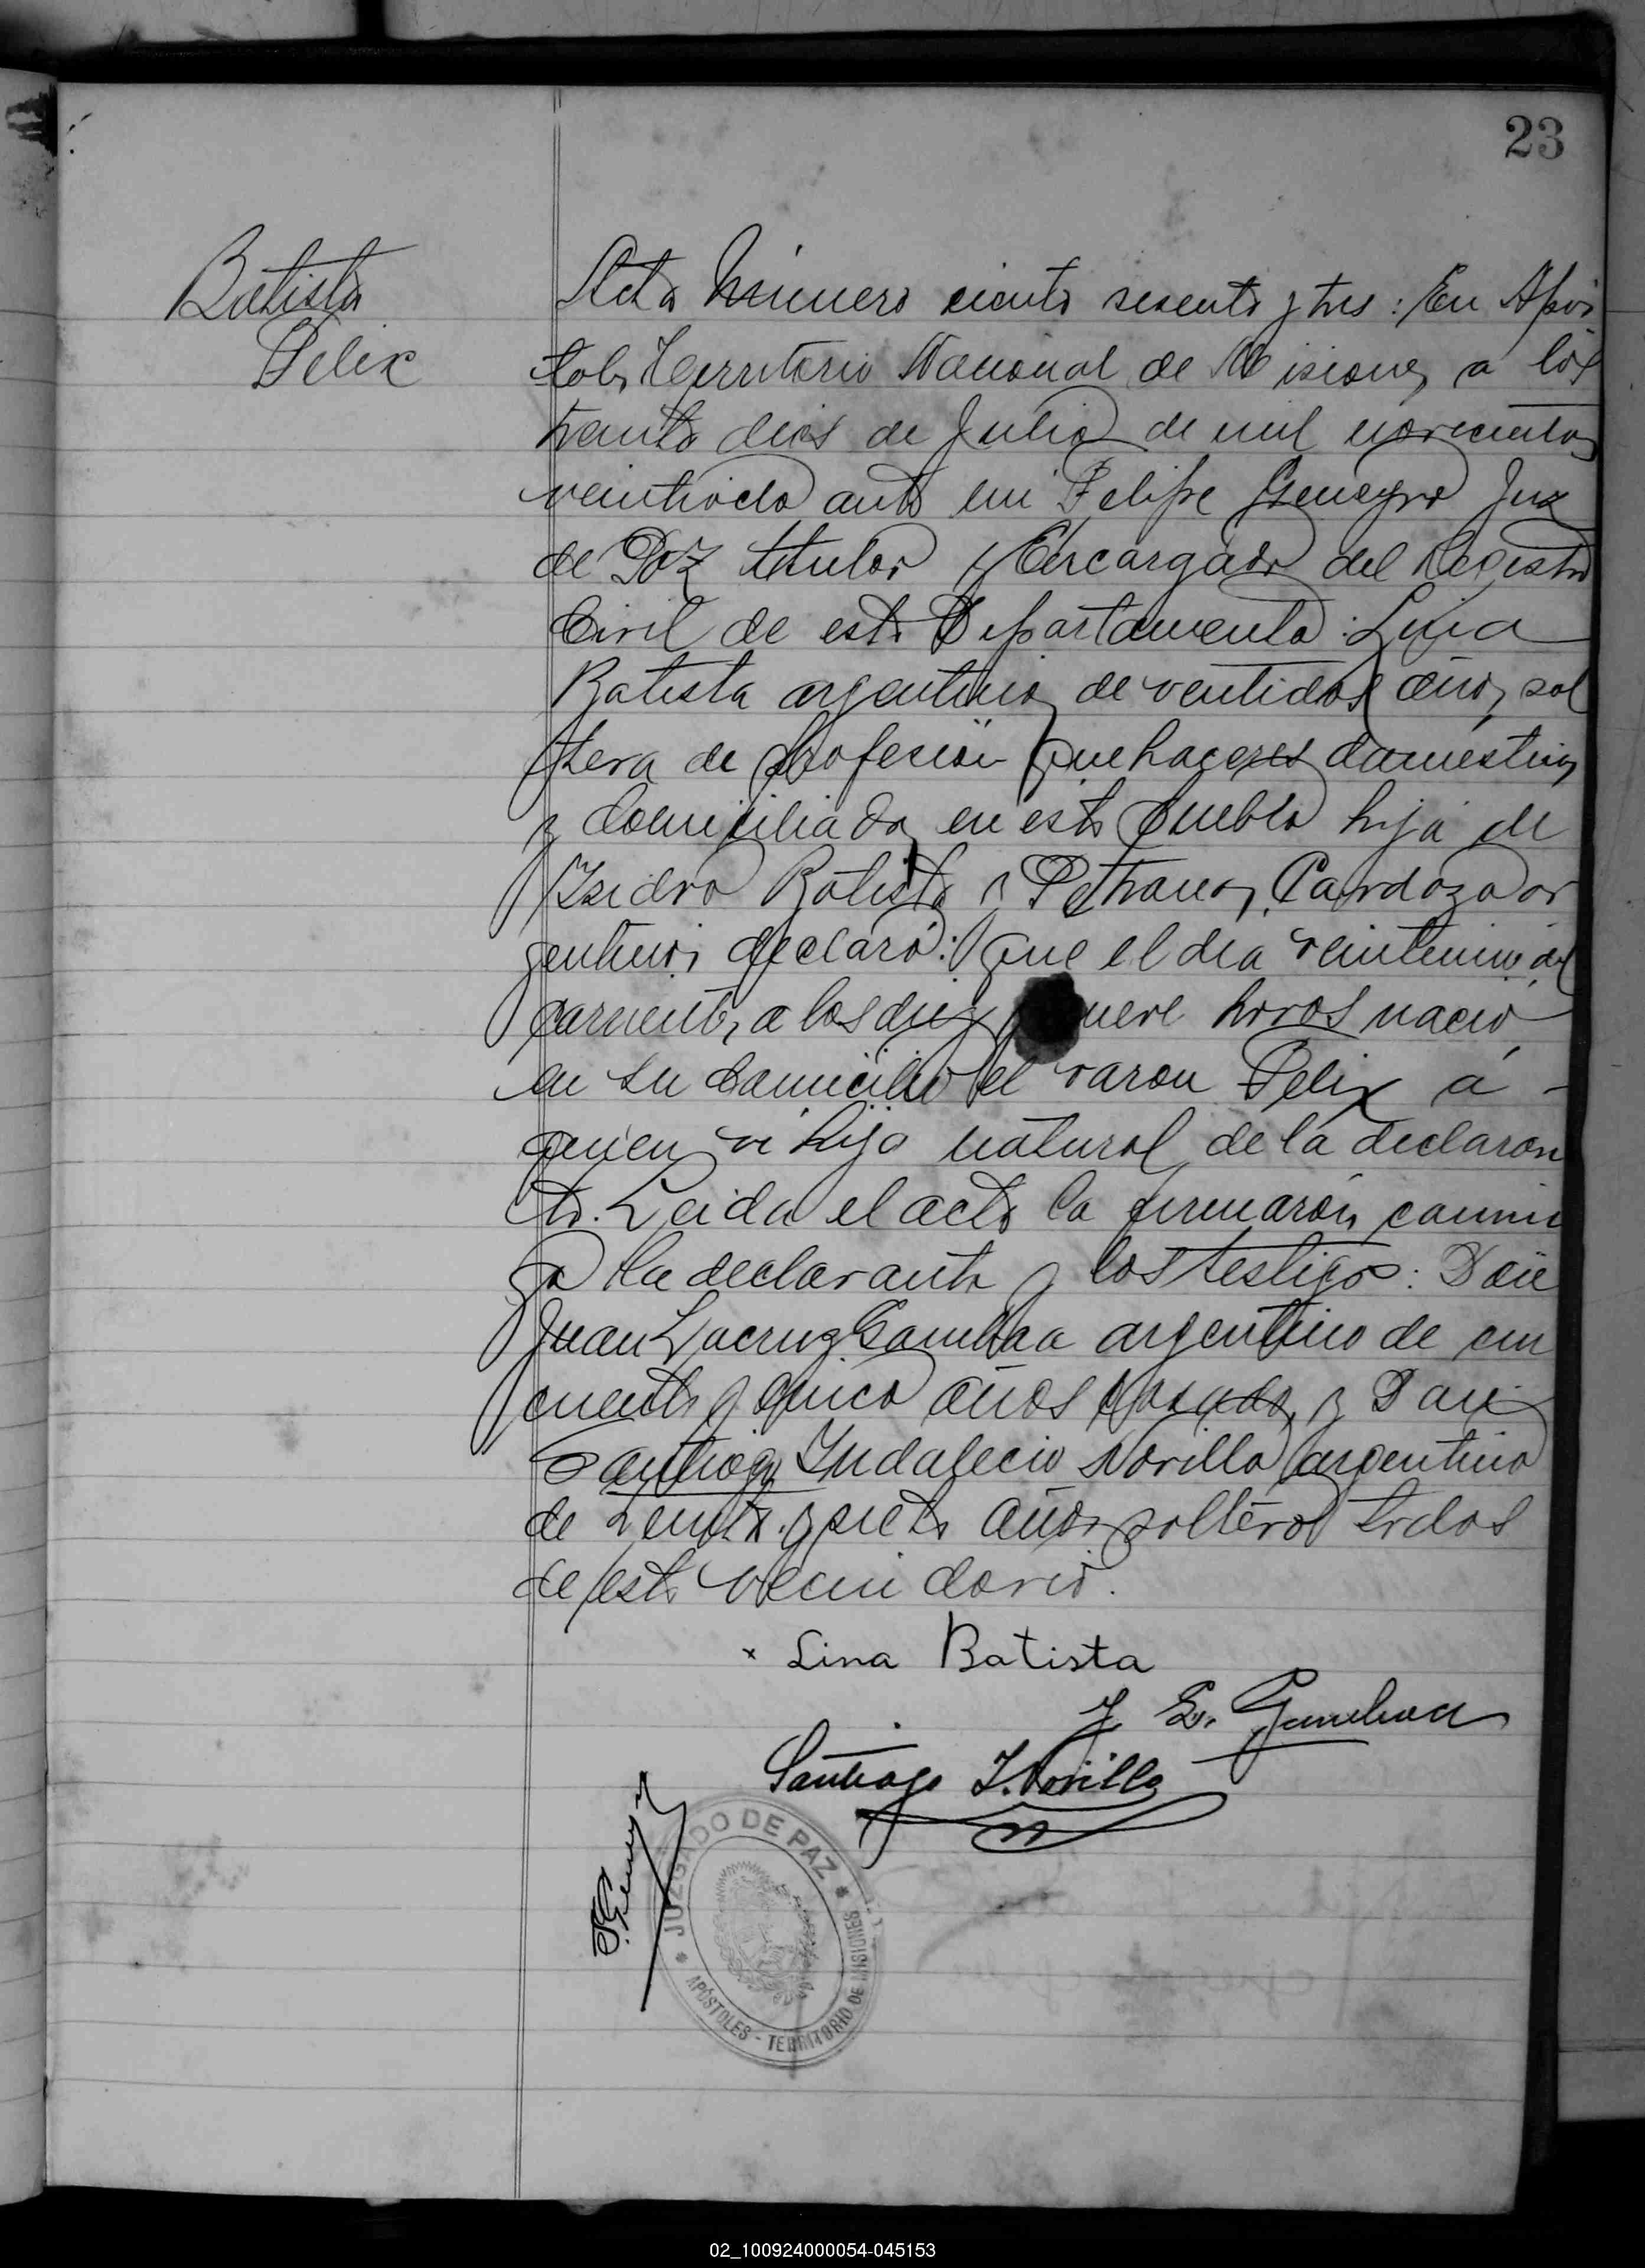 23
Batista
Felix
Acta Número ciento sesenta y tres: En Apos
toles Territorio Nacional de Misiones a los
treinta dias de Julio de mil novecientos
veintiocho ante mi Felipe Juez
de Paz titular y Encargado del Registro
Civil de este Departamento: Lina
Batista argentina de ventidos años, sol
tera de profesion quehaceres domesticos
y domiciliada en este pueblo hija de
Isidro Batista y Petrona Cardozo ar
gentinos declaró: que el dia veintenuve del
corriente, a las diez nueve horas nació
en su domicilio el varon Felix á -
quien vi hijo natural de la declaran
te. Leida el acta la firmaron conmi
go la declarante y los testigos: Don
Juan Lacruz Gamboa argentino de cin
cuenta y cinco años casado, y Don
Santiago Indalecio Novillo argentino
de treinta y siete años soltero todos
de este vecindario.
x Lina Batista
J L. Gamboa
Santiago I. Novillo
JUZGADO DE PAZ
APÓSTOLES - TERRITORIO DE MISIONES
02_100924000054-045153